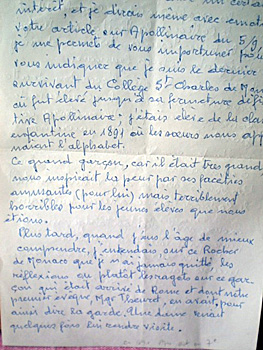 intérêt, et je dirais même avec
votre article sur Apollinaire du 5/9
je me permets de vous importuner
vous indiquer que je suis le dernier
survivant du Collège St Charles de
où fut élevé jusqu'à sa fermeture défini
tive Apollinaire; j'étais élève de la
enfantine en 1891 où les sœurs nous ap
naient l'alphabet.
Ce grand garçon, car il était très grand
nous inspirait la peur par ses facéties
amusantes (pour lui) mais terriblement
horribles pour les jeunes élèves que nous
étions.
Plus tard, quand j'eus l'âge de mieux
comprendre, j'entendais sur ce Rocher
de Monaco que je n'ai jamais quitté les
réflexions ou plutôt les ragots sur ce gar
çon qui était arrivé de Rome et dont notre
premier évêque, Mgr Theuret, en avait, pour
ainsi dire la garde. Une dame venait
quelques fois lui rendre visite.